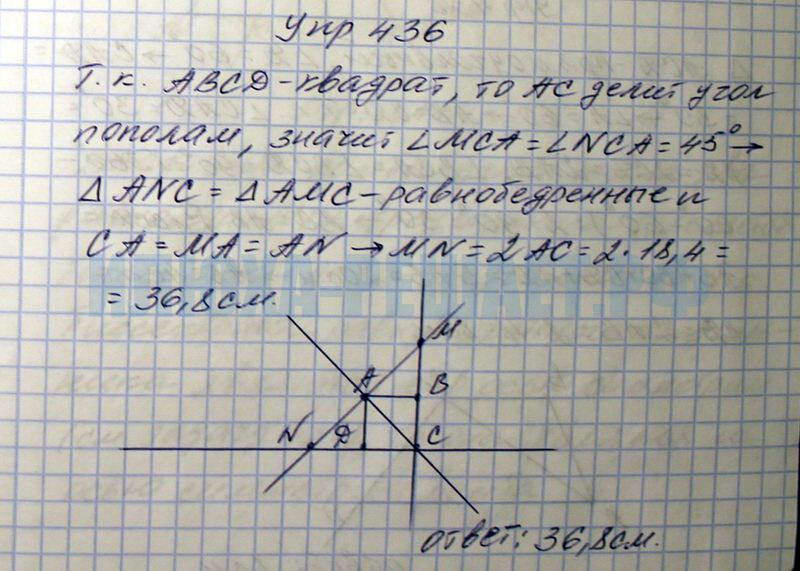 Упр 436
Т.к. ABCD-квадрат, то AC делит угол
пополам, значит ∠MCA=∠NCA=45°→
△ANC=△AMC-равнобедренные и
CA=MA=AN→MN=2AC=2·18,4=
=36,8см.
M
A B
N D C
ответ: 36,8см.